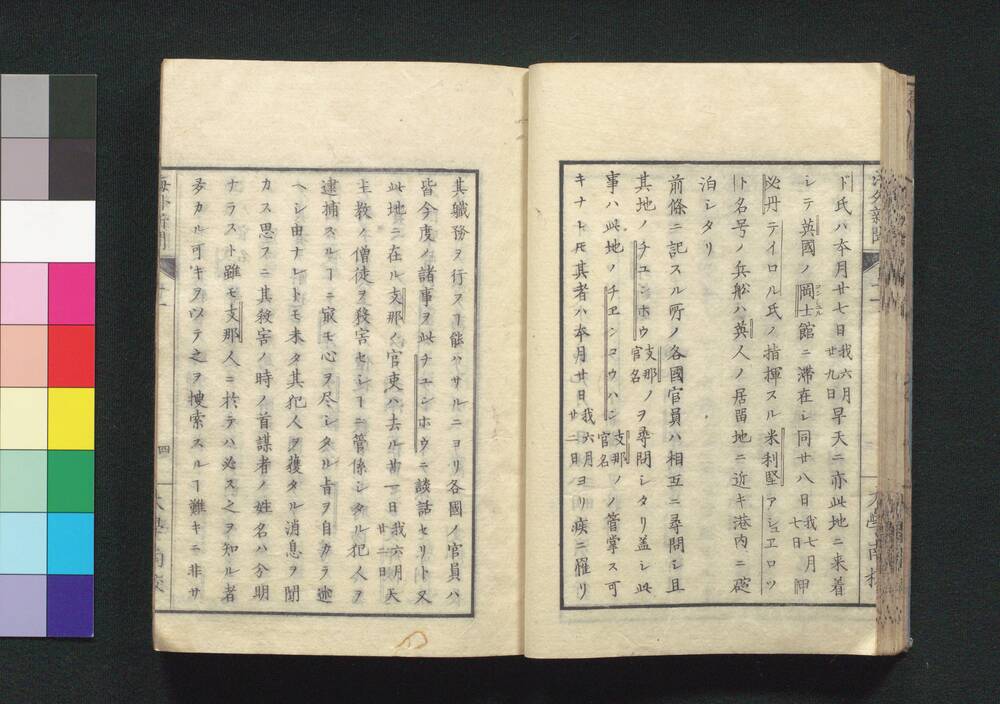 ド氏ハ本月廿七日我六月廿九日早天ニ亦此地ニ来着
シテ英國ノ岡士館ニ滞在シ同廿八日我七月七日
必丹テイロル氏ノ指揮スル米利堅アシユエロツ
ト名号ノ兵舩ハ英人ノ居畱地ニ近キ港内ニ碇
泊シタリ
前條ニ記スル所ノ各國官員ハ相互ニ尋問シ且
其地ノチユンホウ支那官名ノヲ尋問シタリ盖シ此
事ハ此地ノチヱンコウハン支那官名ノノ管掌ス可
キナトモ其者ハ本月廿日我六月廿二日ヨリ疾ニ罹リ
海外新聞
大學南校
其職務ヲ行スヿ能ハサルニヨリ各國ノ官員ハ
皆今度ノ諸事ヲ此チユンホウニ談話セリト又
此地ニ在ル支那ノ官吏ハ去ル廿一日我六月廿二日天
主教ノ僧徒ヲ殺害セシヿニ管係シタル犯人ヲ
逮捕スルヿニ㝡モ心ヲ尽シタル旨ヲ自カラ逑
ヘシ由ナレトモ未タ其犯人ヲ獲タル消息ヲ聞
カス思フニ其殺害ノ時ノ首謀者ノ姓名ハ分明
ナラスト雖モ支那人ニ於テハ必ス之ヲ知ル者
多カル可キヲ以テ之ヲ捜索スルヿ難キニ非サ
海外新聞
四
大學南校